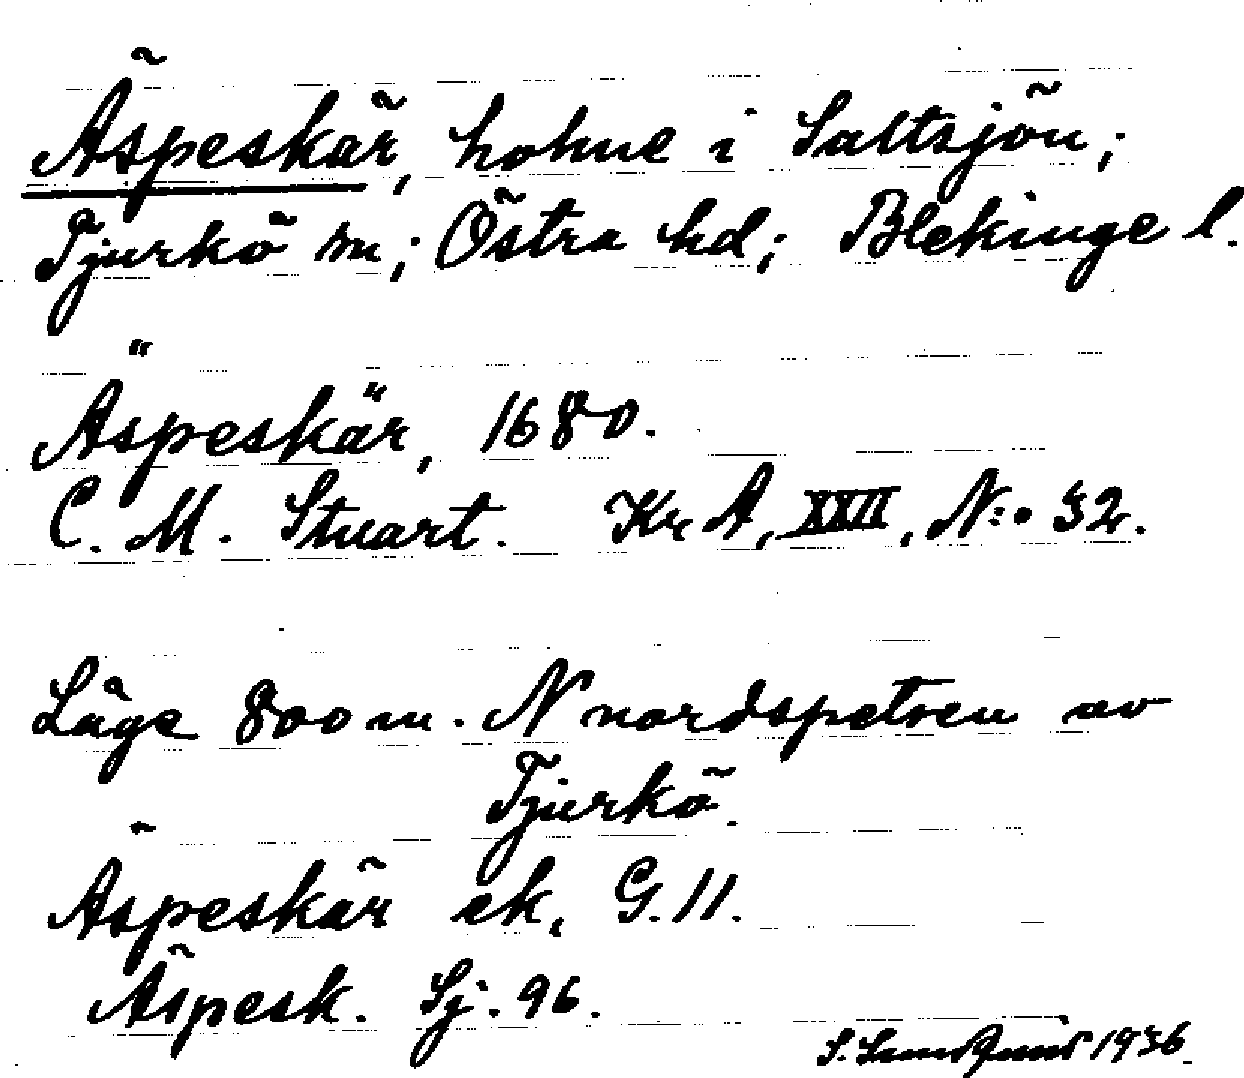 Äspeskär, holme i Saltsjön;
Tjurkö sn; Östra hd; Blekinge l.
Äspeskär, 1680.
C. M. Stuart. Kr A, XXII, N:o 32.
Läge 800 m. N nordspetsen av
Tjurkö.
Äspeskär ek. G. 11.
Äspesk. Sj. 96.
S. 1936.